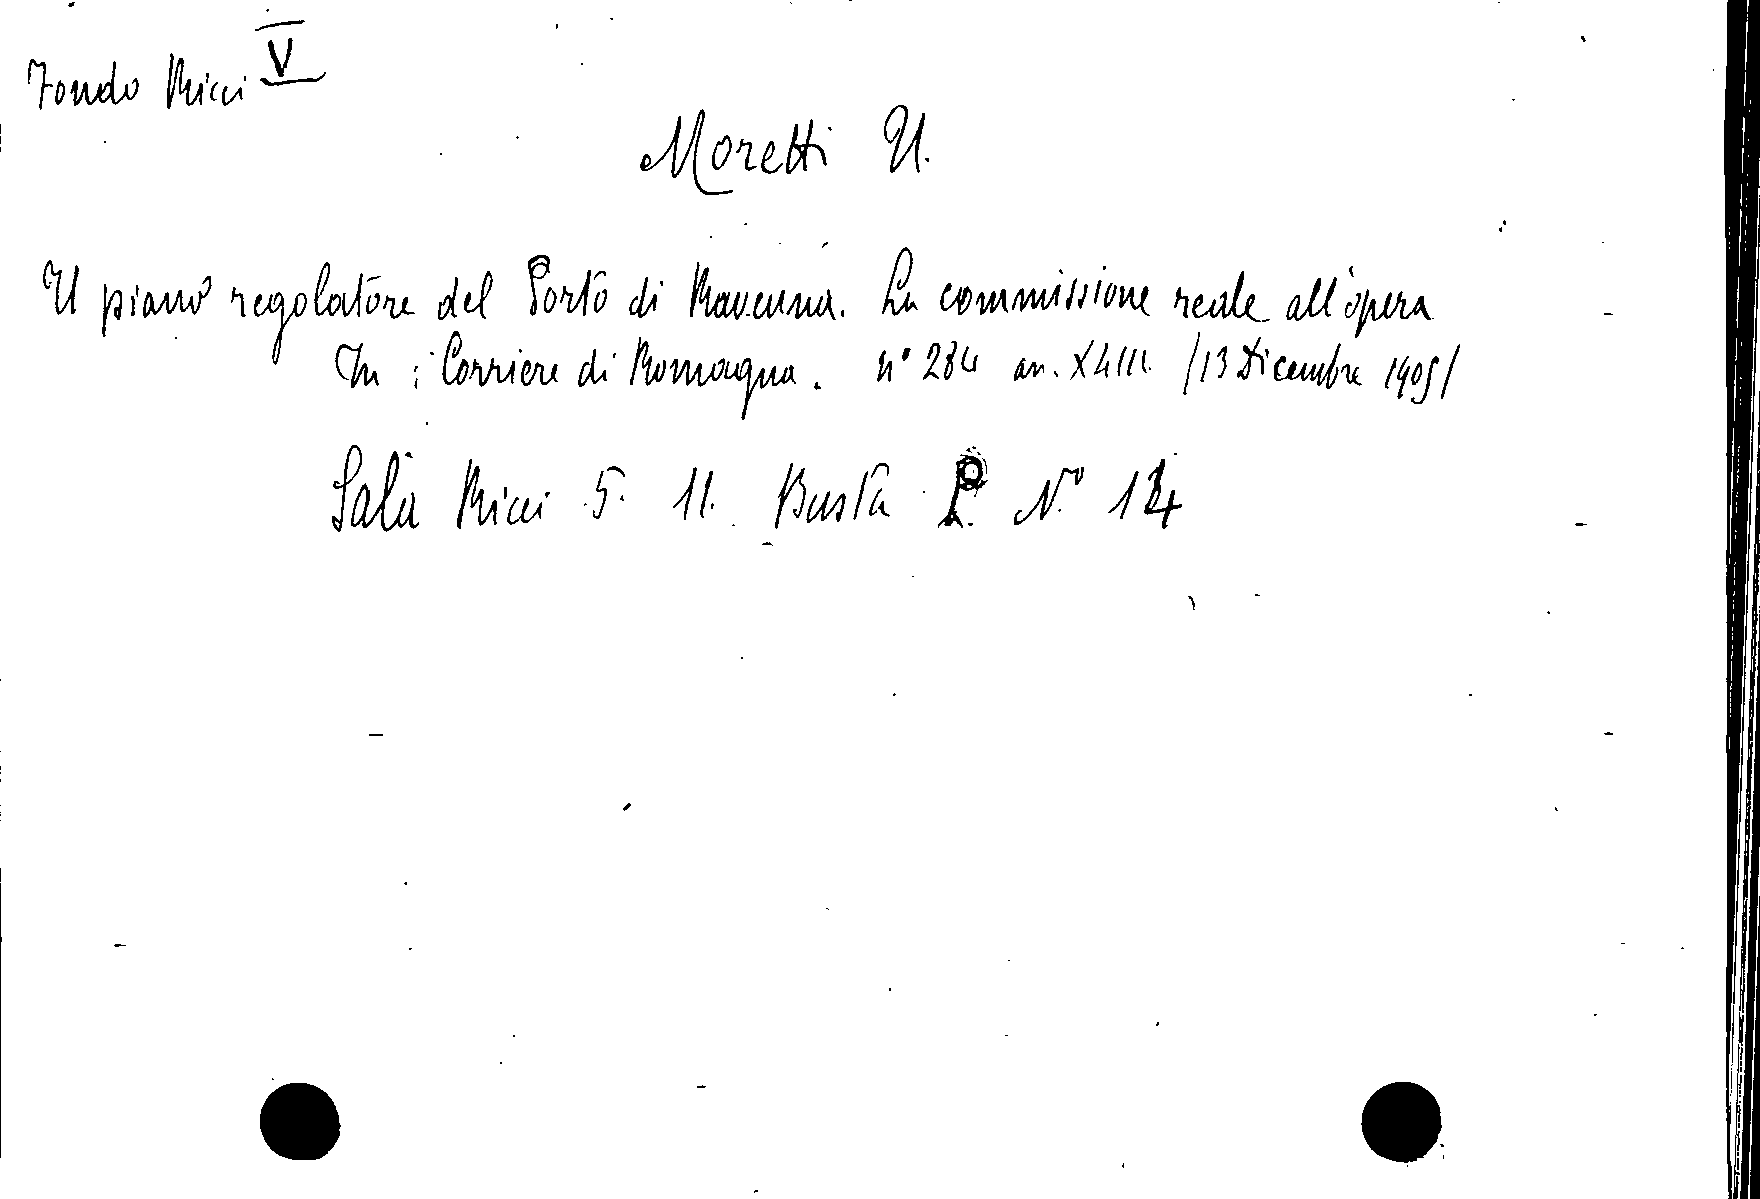 Fondo Ricci V
Moretti U.
Il piano regolatore del Porto di Ravenna. La commissione reale all'opera
In: Corriere di Romagna. n° 284 an. /13 Dicembre 1905/
Sala Ricci 5. 11. Busta P. N.° 134